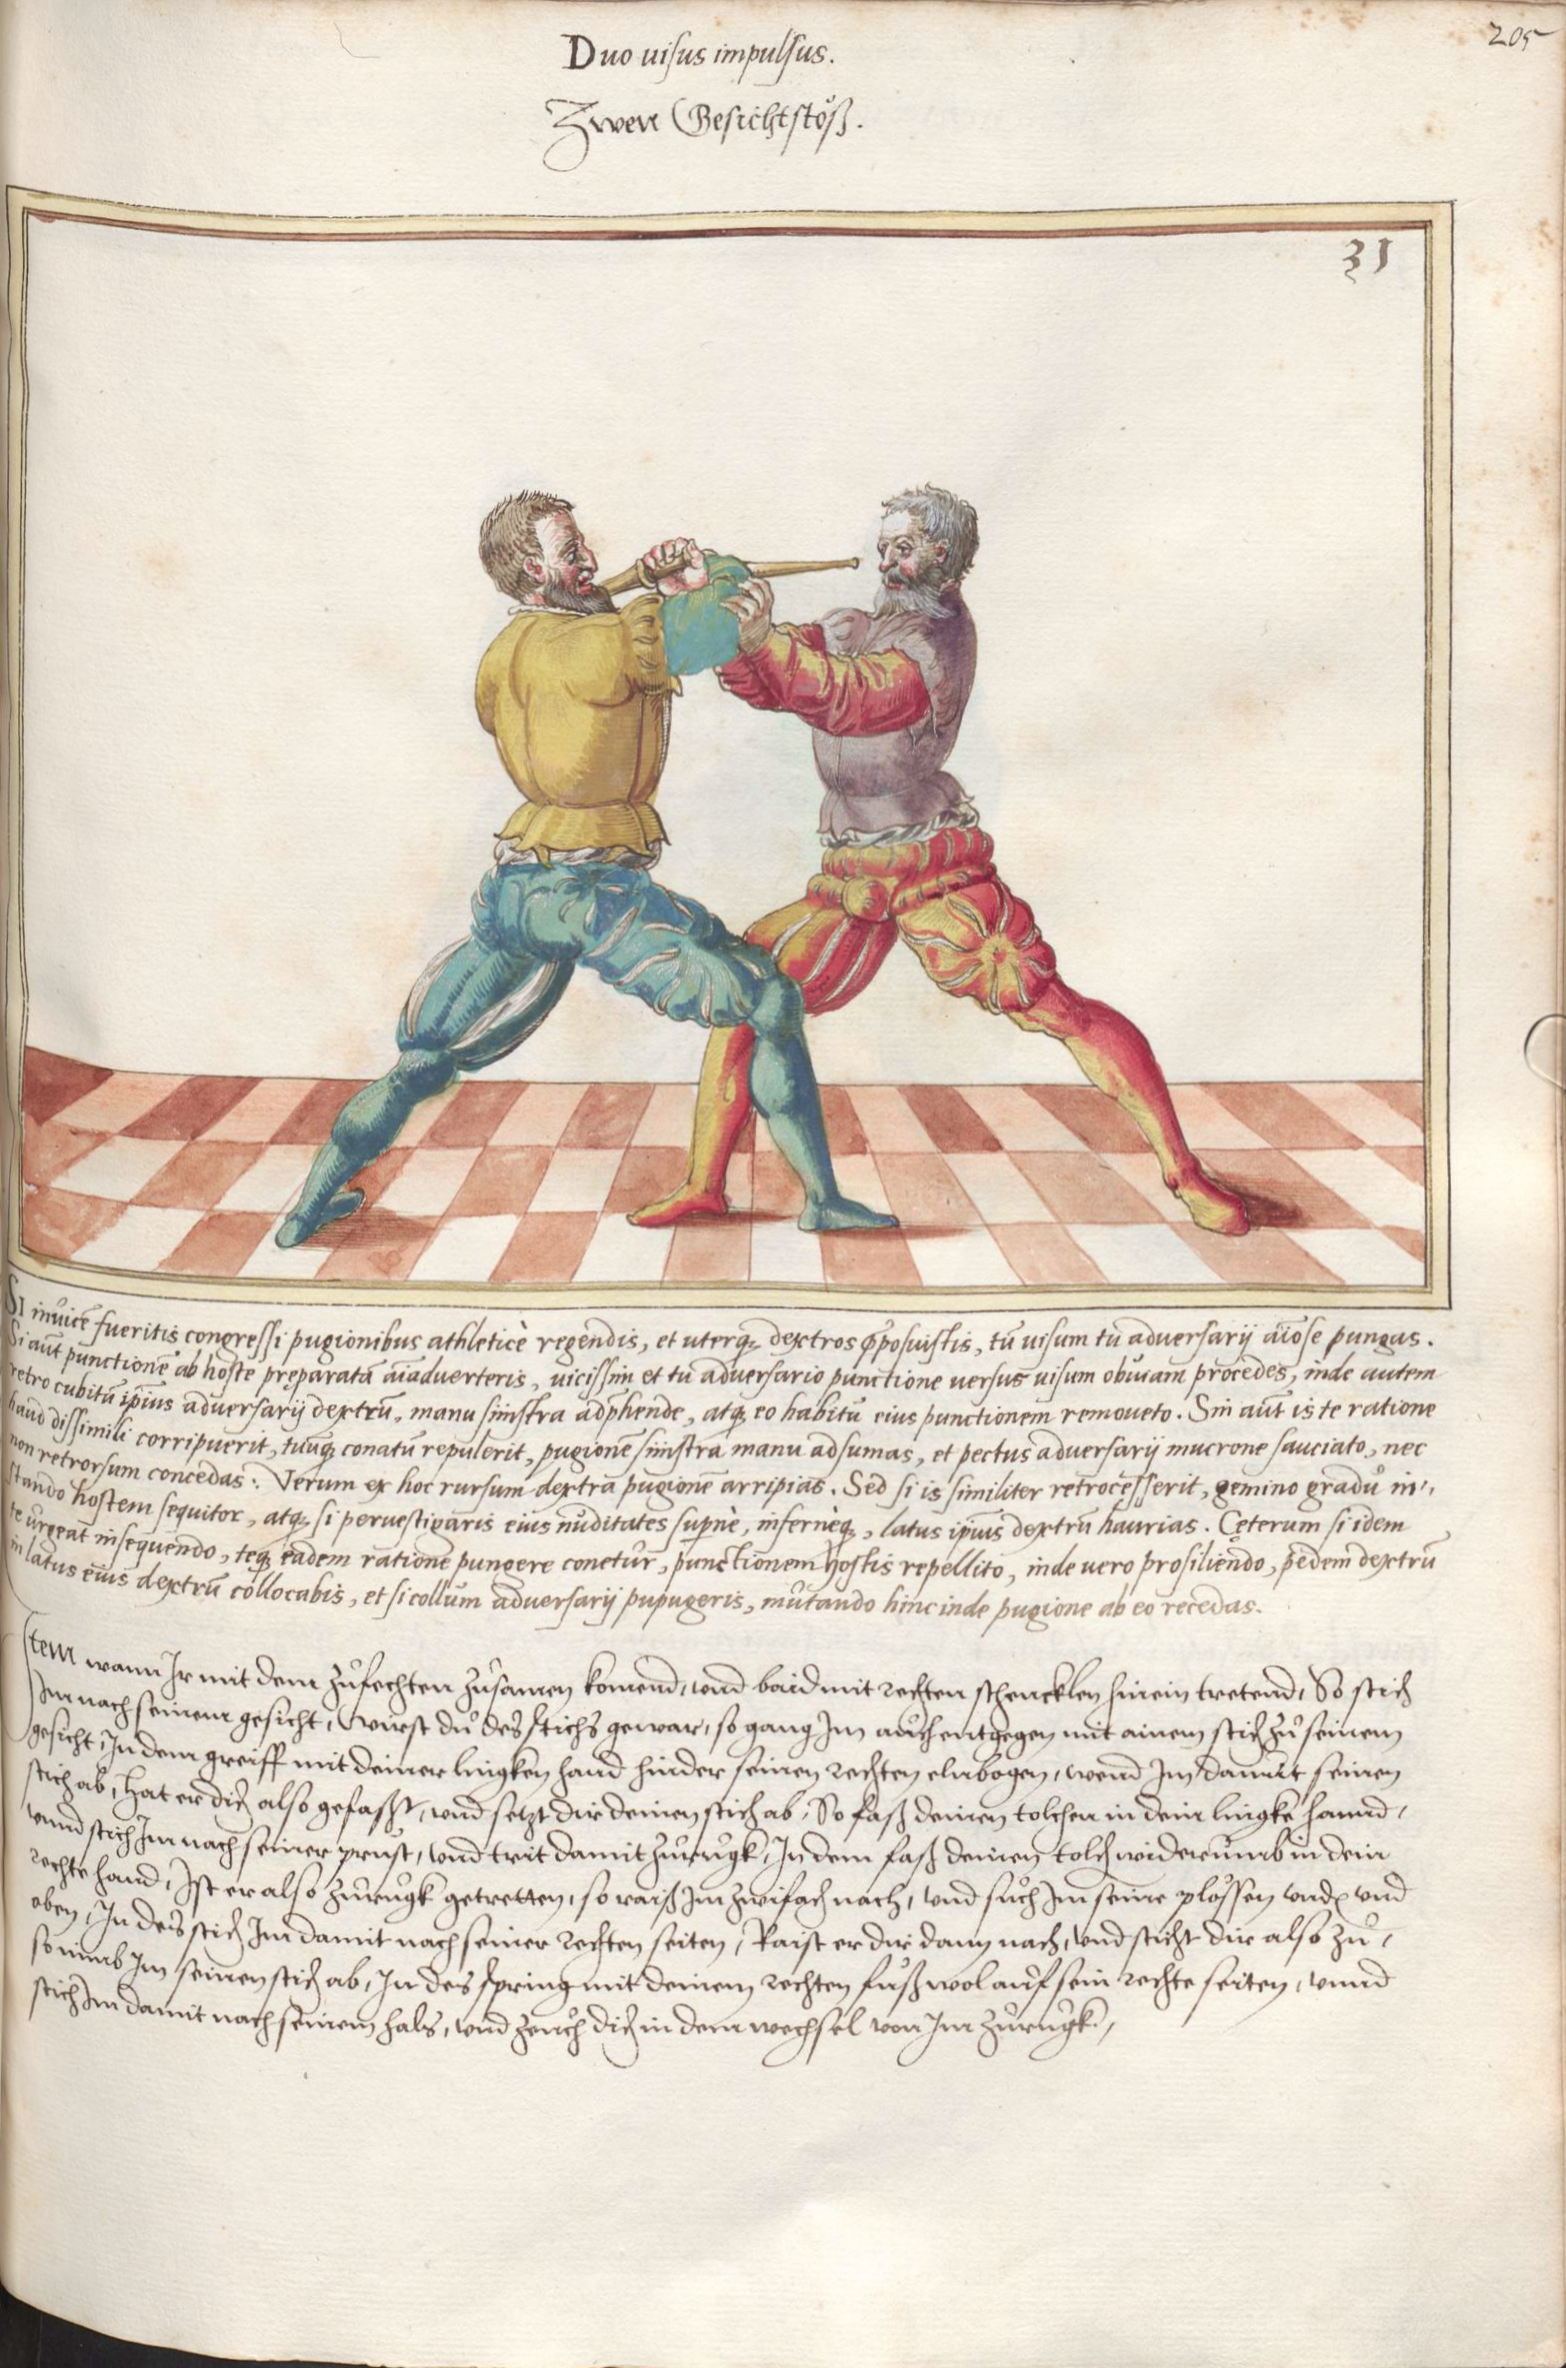 205
Duo uisus impulsus.
Zwen Gesichtstöß.
31
SI inuicē fueritis congressi pugionibus athleticè regendis, et uterq; dextros p̄posuistis, tū uisum tu aduersarij aīose pungas.
Si aūt punctionē ab hoste pręparatā aīaduerteris, uicissim et tu aduersario punctione uersus uisum obuiam procedes, inde autem
retro cubitū ip̄ius aduersarij dextrū, manu sinistra adp̄hende, atq; eo habitu eius punctionem remoueto. Sin aūt is te ratione
haud dissimili corripuerit, tuūq; conatū repulerit, pugionē sinistra manu adsumas, et pectus aduersarij mucrone sauciato, nec
non retrorsum concedas: Verum ex hoc rursum dextra pugionē arripias. Sed si is similiter retrocesserit, gemino gradu in,,
stando hostem sequitor, atq; si peruestigaris eius nuditates supnè, infernèq;, latus ip̄ius dextrū haurias. Cęterum si idem
te urgeat insequendo, teq; eadem ratione pungere conetur, punctionem hostis repellito, inde uero prosiliendo, pedem dextrū
in latus eius dextrū collocabis, et si collum aduersarij pupugeris, mutando hinc inde pugione ab eo recedas.
Item wann Ir mit dem zůfechten zůsamen komend, vnd baid mit rechten schencklen hinein tretend, So stich
Im nach seinem gesicht, Würst du des stichs gewar, so gang Im auch entgegen mit ainem stich zů seinem
gesicht, In dem greiff mit deiner lingken hand hinder seinen rechten elnbogen, wend Im damit seinen
stich ab, Hat er dich also gefaßt, vnd setzt dir deinen stich ab, So faß deinen tolchen in dein lingke hannd,
vnnd stich Im nach seiner prust, vnd trit damit zůrugk, In dem faß deinen tolch widerumb in dein
rechte hand, Ist er also zůrugk getretten, so raiß Im zwifach nach, vnd sůch Im seine plössen vndē vnd
oben, In des stich Im damit nach seiner rechten seiten, Raist er dir dann nach, vnd sticht dir also zů,
so nimb Im seinen stich ab, In des spring mit deinem rechten fůß wol auf sein rechte seiten, vnnd
stich Im damit nach seinem hals, vnd zeuch dich in dem wechsel von Im zůrugk,